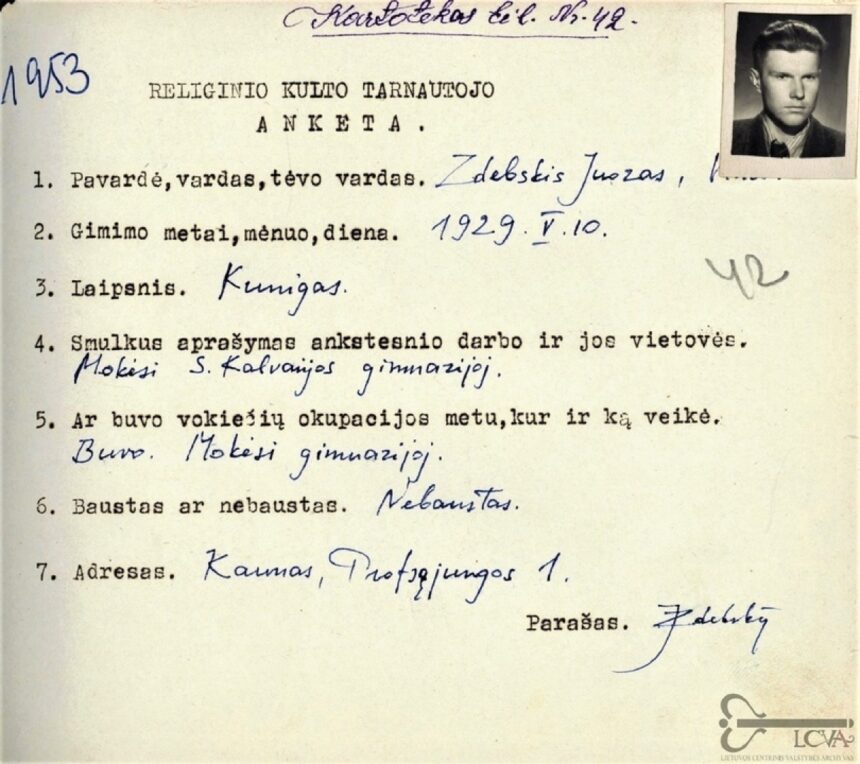 Kartotekos bil. Nr. 42.
1953
RELIGINIO KULTO TARNAUTOJO
ANKETA.
1. Pavardė,vardas,tėvo vardas. Zdebskis Juozas,
2. Gimimo metai,mėnuo,diena. 1929. V. 10.
42
3. Laipsnis. Kunigas.
4. Smulkus aprašymas ankstesnio darbo ir jos vietovės.
Mokėsi S. Kalvarijos gimnazijoj.
5. Ar buvo vokiečių okupacijos metu,kur ir ką veikė.
Buvo. Mokėsi gimnazijoj.
6. Baustas ar nebaustas. Nebaustas.
7. Adresas. Kaunas, Profsąjungos 1.
Parašas. JZdebskis
LCVA
LIETUVOS CENTRINIS VALSTYBĖS ARCHYVAS